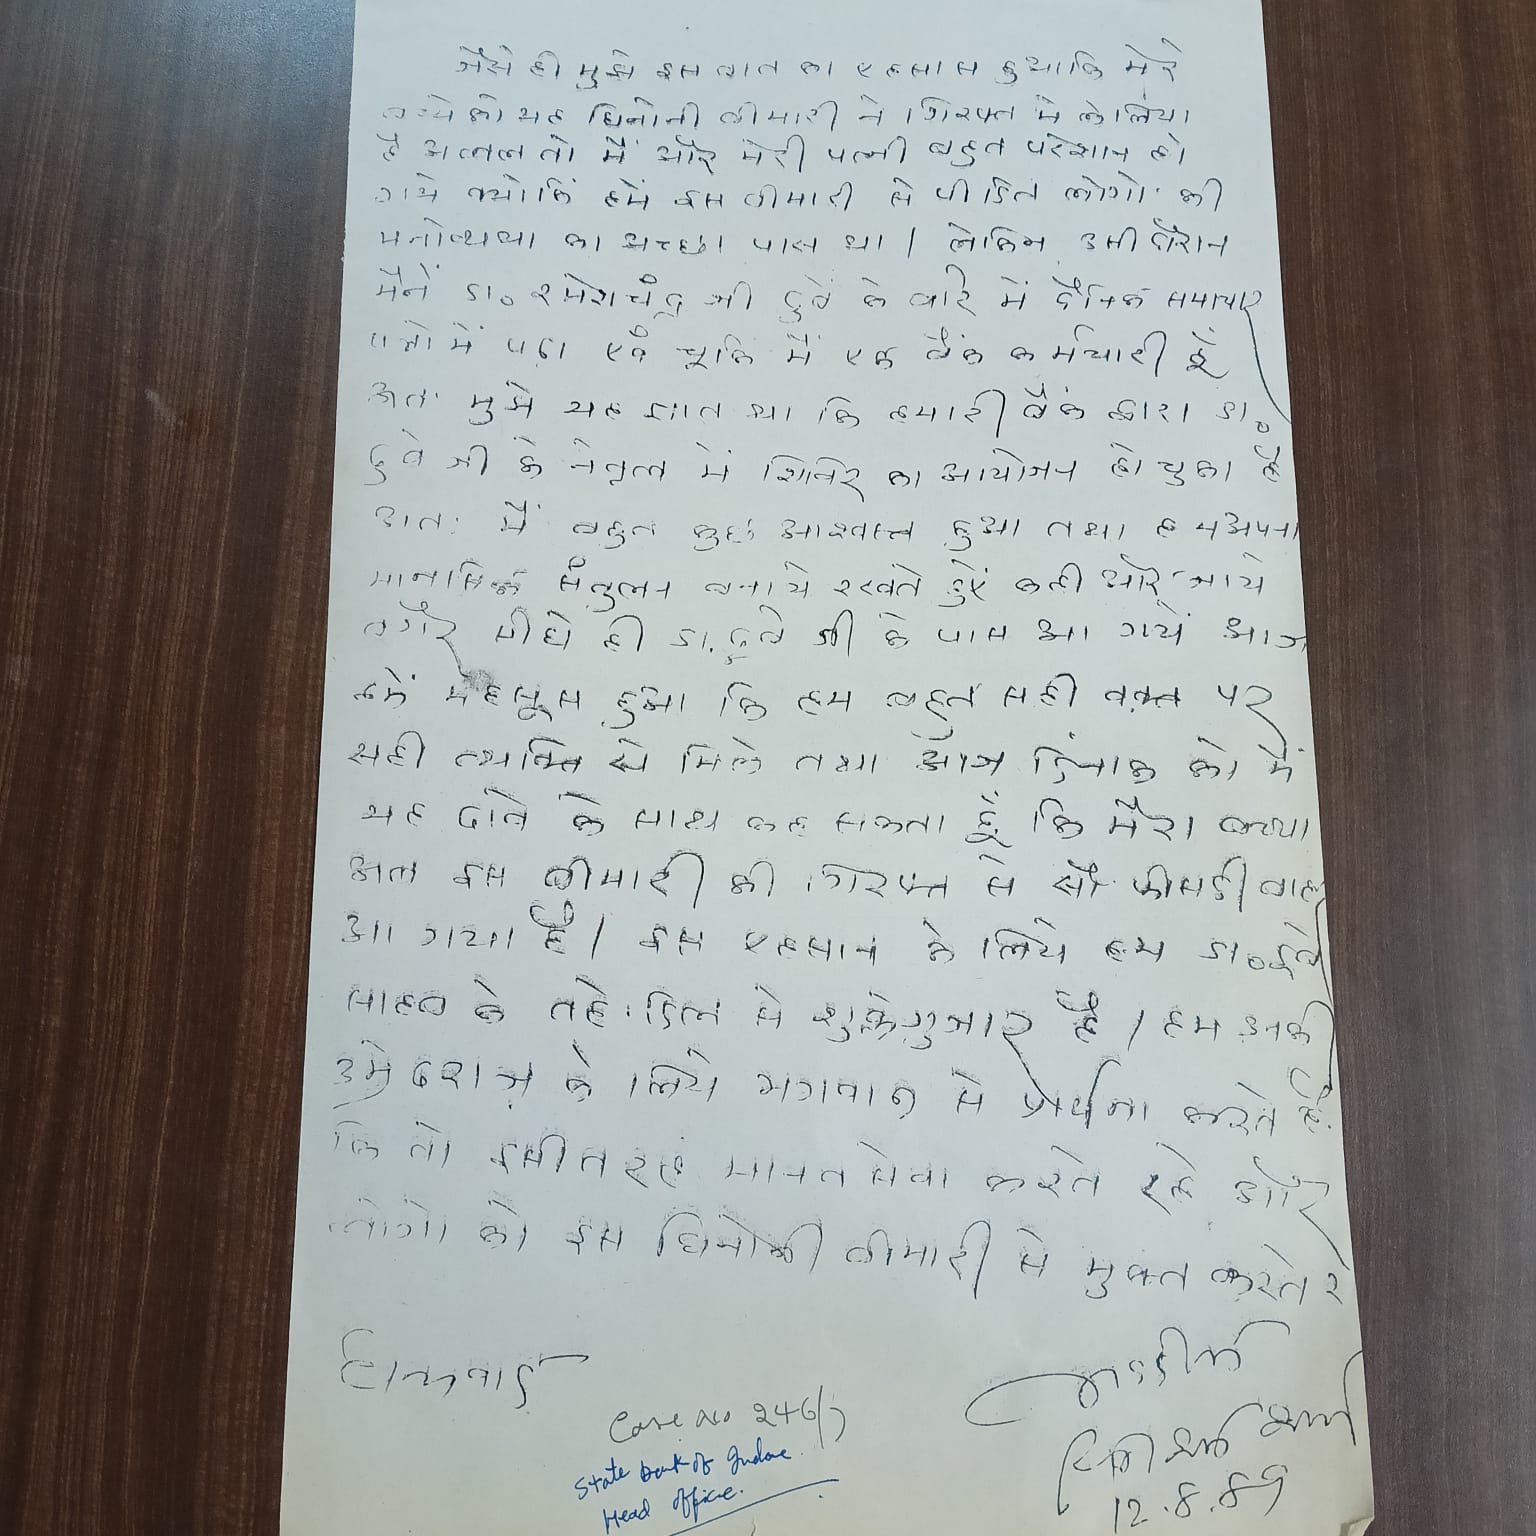 जैसे ही मुझे इस बात का एहसास हुआ कि मेरे
बच्चे को यह घिनोनी बीमारी ने गिरफ्त मे ले लिया
है अव्वल तो मैं और मेरी पत्नी बहुत परेशान हो
गये क्योकि हमें इस बीमारी से पीडित लोगो की
मनोव्यथा का अच्छा पास था । लेकिन उसी दौरान
मैने डा० रमेशचँद्र जी दुवे के बारे में दैनिक समाचार
पत्रो में पढा एवँ चूकि मैं एक बैंक कर्मचारी हूँ
अतः मुझे यह ज्ञात था कि हमारी बैंक द्वारा डा०
दुवे जी के नेतृत्व में शिविर का आयोजन हो चुका है
अतः मैं बहुत कुछ आश्वस्त हुआ तथा हम अपना
मानसिक सँतुलन बनाये रखते हुए कही और जाये
वगैर सीधे ही डा. दुवे जी के पास आ गयें आज
हमें महसूस हुआ कि हम बहुत सही वक्त पर
सही व्यक्ति से मिले तथा आज दिनांक को मैं
यह दावे के साथ कह सकता हूँ कि मेरा बच्चा
अब इस बीमारी की गिरफ्त से सौ फीसदी बाहर
आ गया है । इस एहसान के लिये हम डा० दुवे
साहब के तहे दिल से शुक्रेगुजार है । हम उनकी
उम्रे दराज के लिये भगवान से प्रार्थना करते है.
कि वो इसी तरह मानव सेवा करते रहे और
लोगो को इस घिनोनी बीमारी से मुक्त करते र
धन्यवाद
Case No 246/7
State Bank of Indore
Head Office.
12.8.89